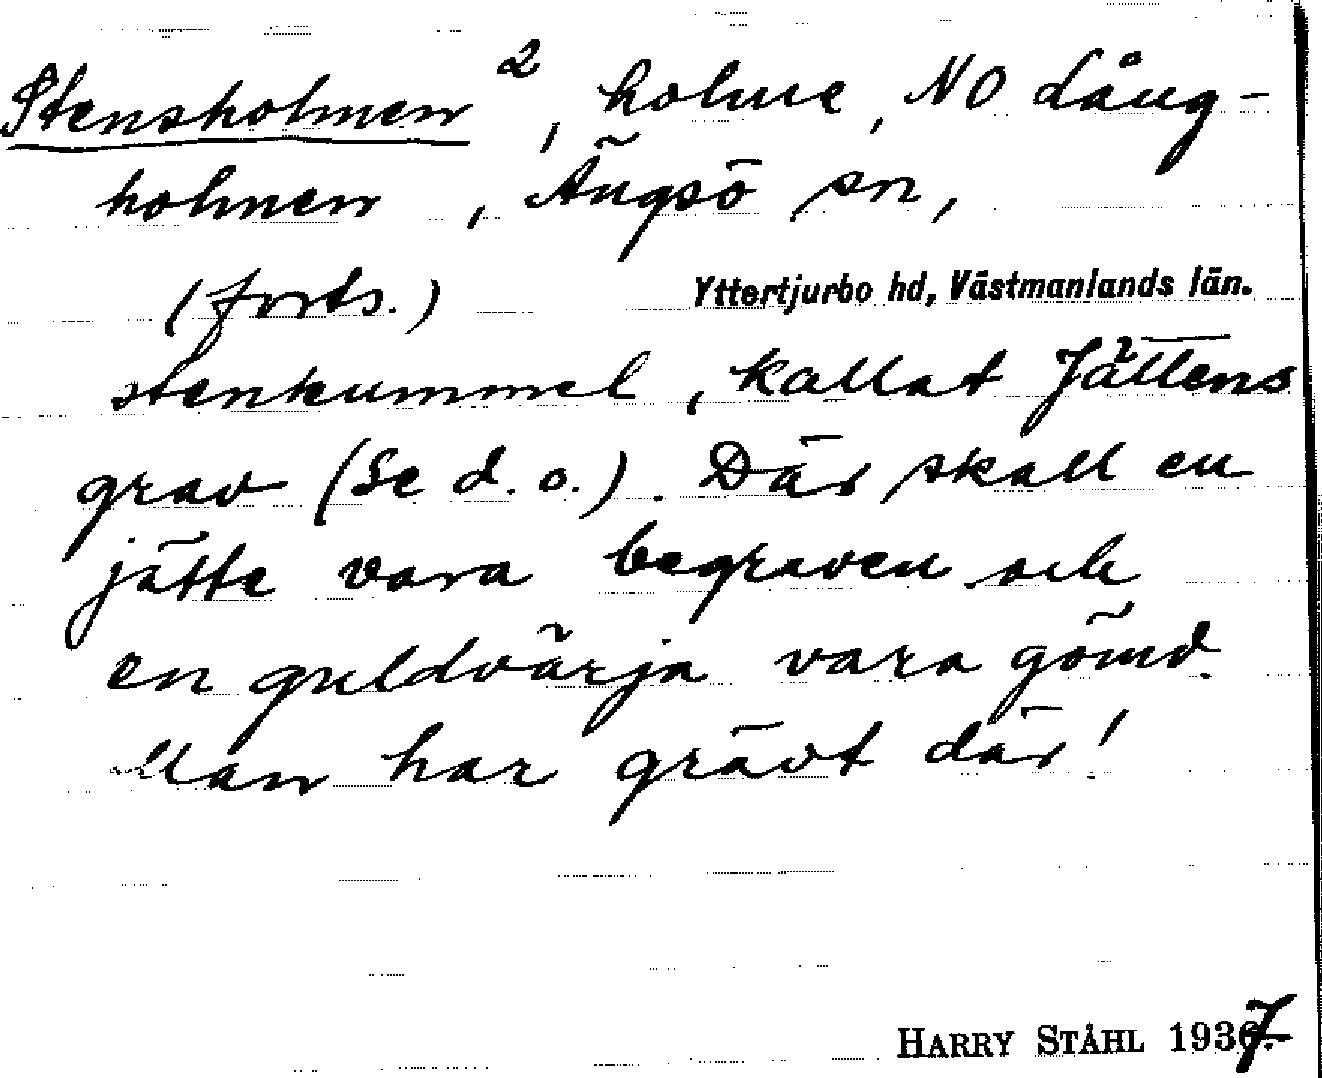 Stensholmen ², holme, NO Lång-
holmen, Ängsö sn,
(forts.) Yttertjurbo hd, Västmanlands län.
stenkummel, kallat Jättens
grav (Se d. o.). Där skall en
jätte vara begraven och
en guldvärja vara gömd.
Man har grävt där!
HARRY STÅHL 1937